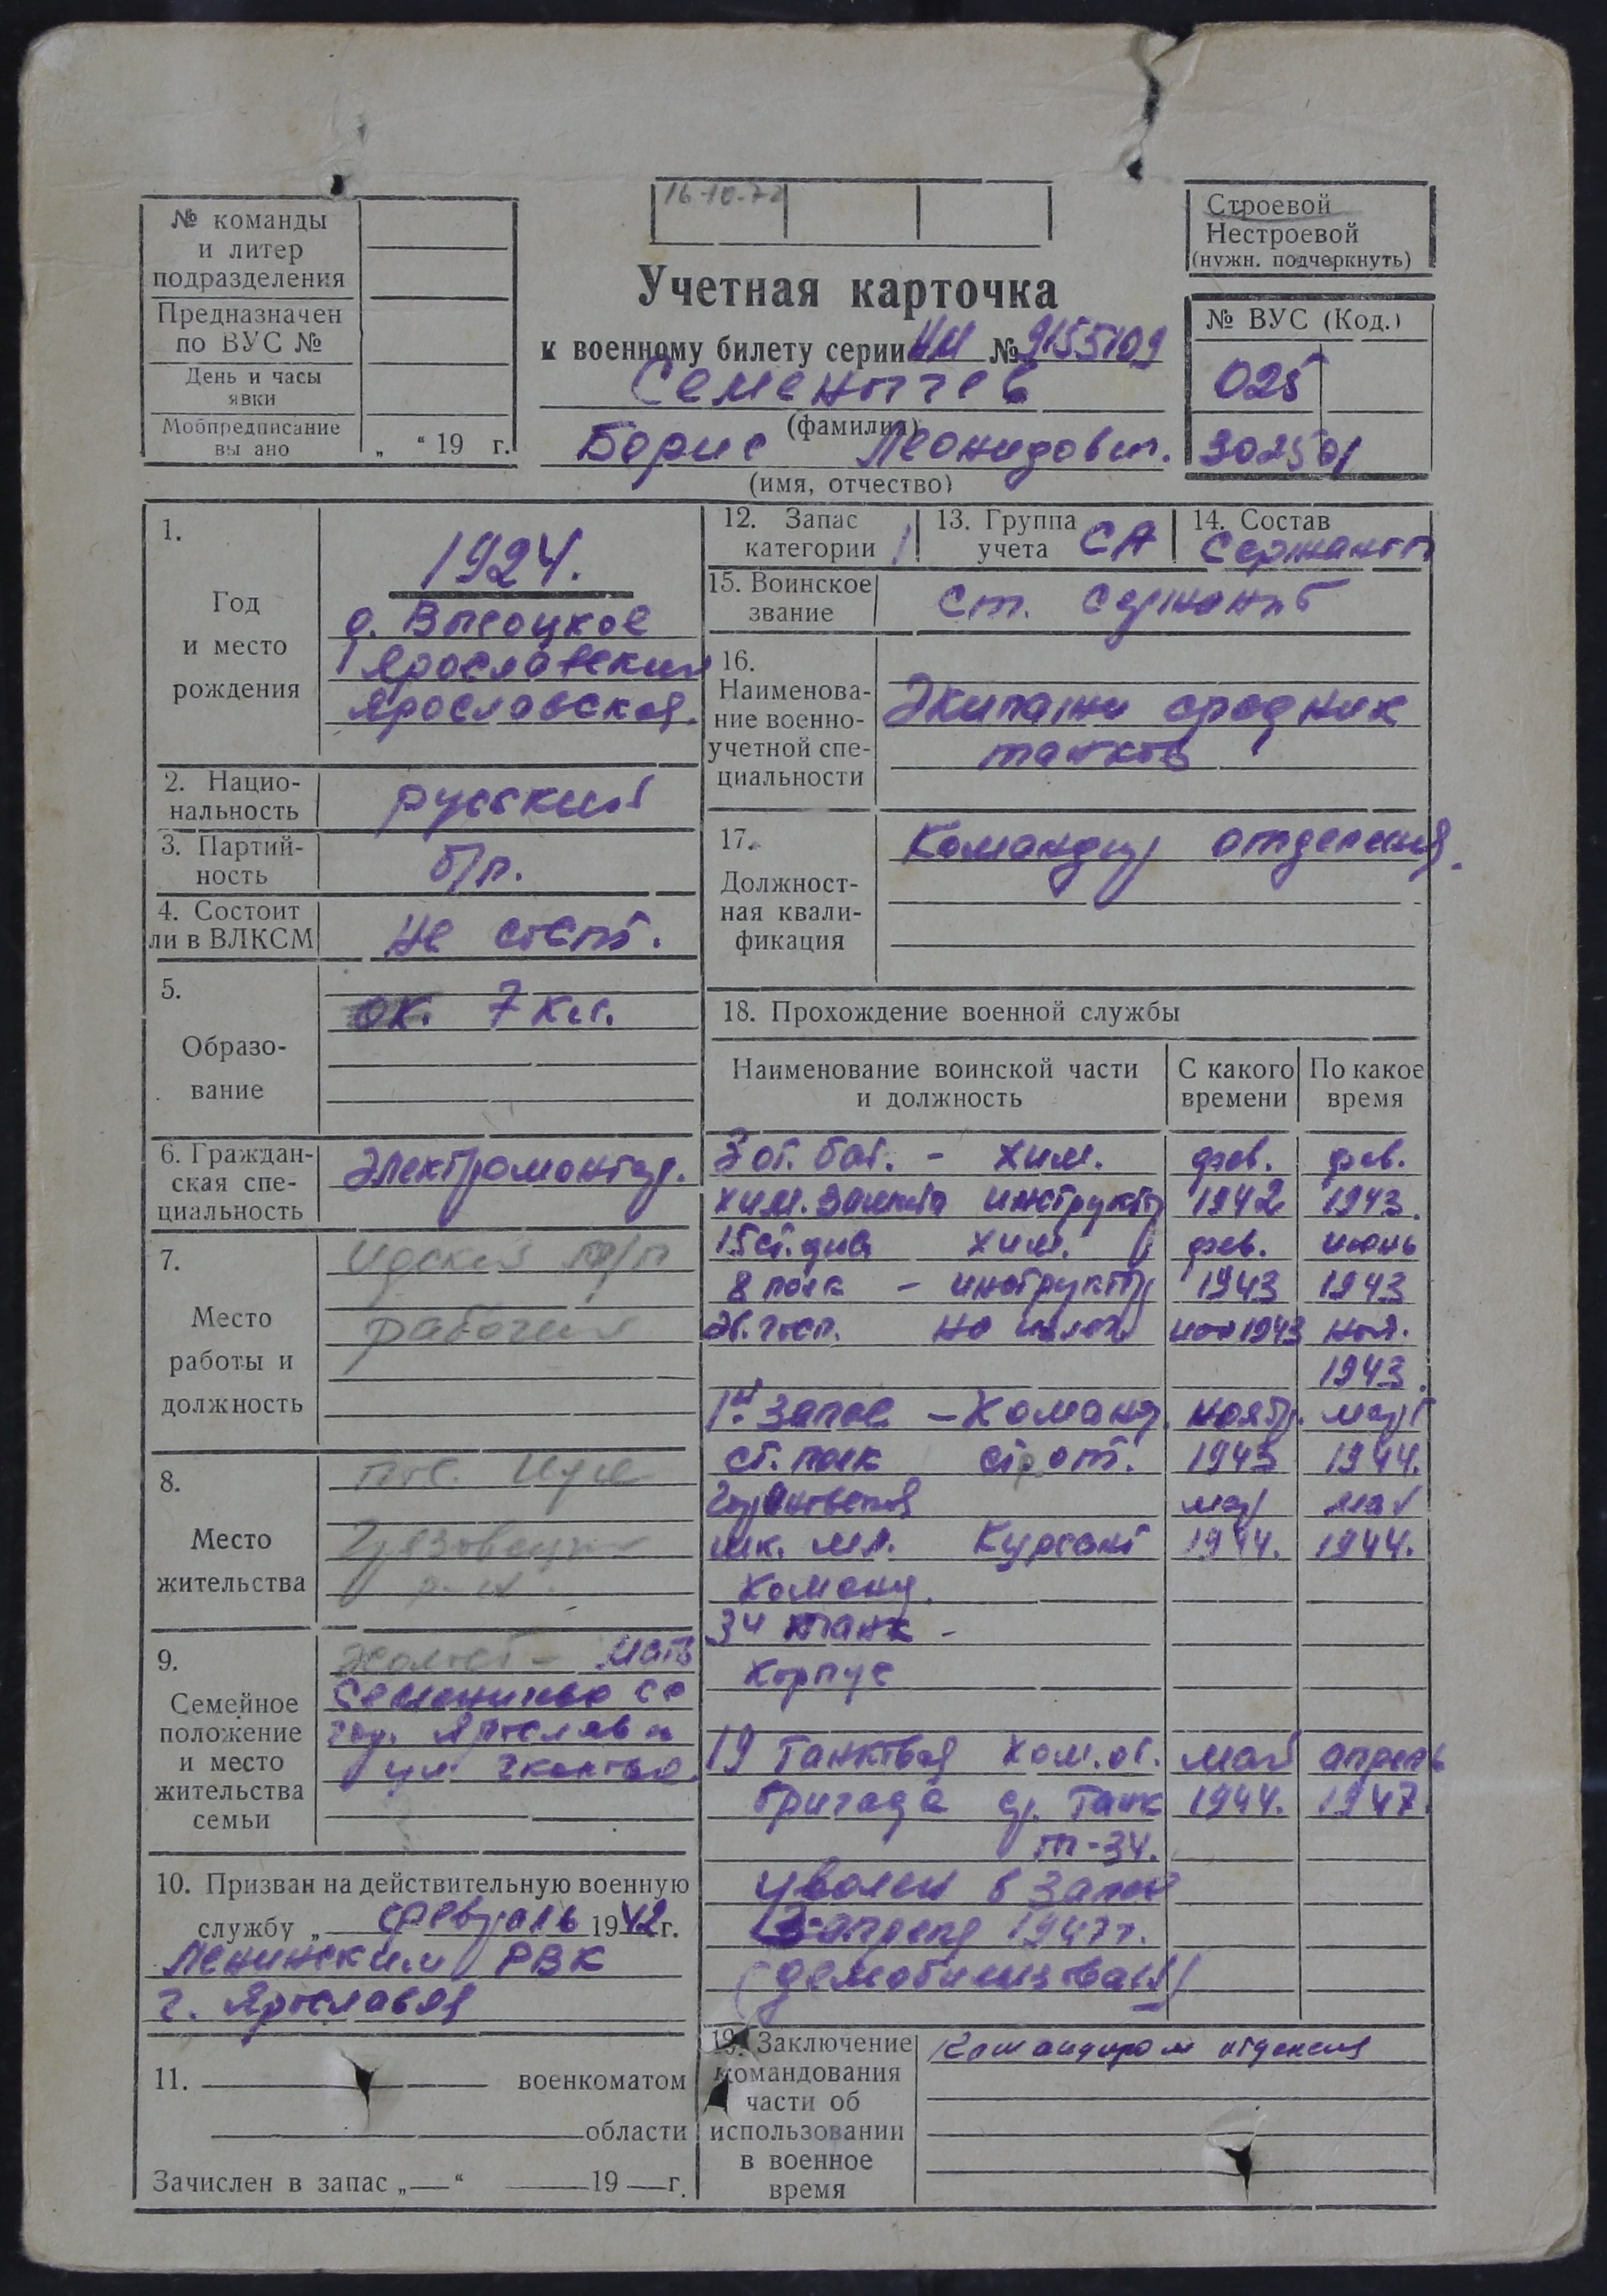 16-10-72
№ команды
и литер
подразделения
Предназначен
по ВУС №
День и часы
явки
Мобпредписание
вы ано „ “ 19 г.
Строевой
Нестроевой
(нужн. подчеркнуть)
Учетная карточка
к военному билету серии НИ № 9155109
Семенычев
(фамилия)
Борис Леонидович.
(имя, отчество)
№ ВУС (Код.)
025
302501
1.
Год
и место
рождения
1924.
д. Высоцкое
Ярославский
Ярославская.
2. Нацио-
нальность
русский
3. Партий-
ность
б/п.
4. Состоит
ли в ВЛКСМ
не сост.
5.
Образо-
вание
ок. 7 кл.
6. Граждан-
ская спе-
циальность
Электромонтер.
7.
Место
работы и
должность
Идский т/п
рабочий
8.
Место
жительства
пос. Ида
Грязовецкий
р-н.
9.
Семейное
положение
и место
жительства
семьи
Холост - мать
гор. Ярославль
ул. Чкалова.
10. Призван на действительную военную
службу „ февраль 1942 г.
Ленинским РВК
г. Ярославля
11. военкоматом
области
Зачислен в запас „ “ 19 г.
12. Запас
категории 1
13. Группа
учета СА
14. Состав
Сержанты
15. Воинское
звание
Ст. сержант
16.
Наименова-
ние военно-
учетной спе-
циальности
Экипажи средних
танков
17.
Должност-
ная квали-
фикация
Командир отделения.
18. Прохождение военной службы
Наименование воинской части
и должность
С какого
времени
По какое
время
3 от. бат. - хим. фев. фев.
хим. защиты инструктор 1942 1943.
15 ст. див хим. фев. июнь
8 полк - инструктор 1943 1943
Эв. госп. на излеч. июн 1943 ноя.
1943.
1й запас - Команд. ноябр. март
ст. полк стр. от. 1943 1944.
мар май
шк. мл. Курсант 1944. 1944.
команд.
34 танк -
корпус
19 Танковая ком. от. май апрель
бригада ср. танк 1944. 1947.
т-34.
уволен в запас
апреля 1947 г.
(демобилизован)
19. Заключение
командования
части об
использовании
в военное
время
Командиром отделения